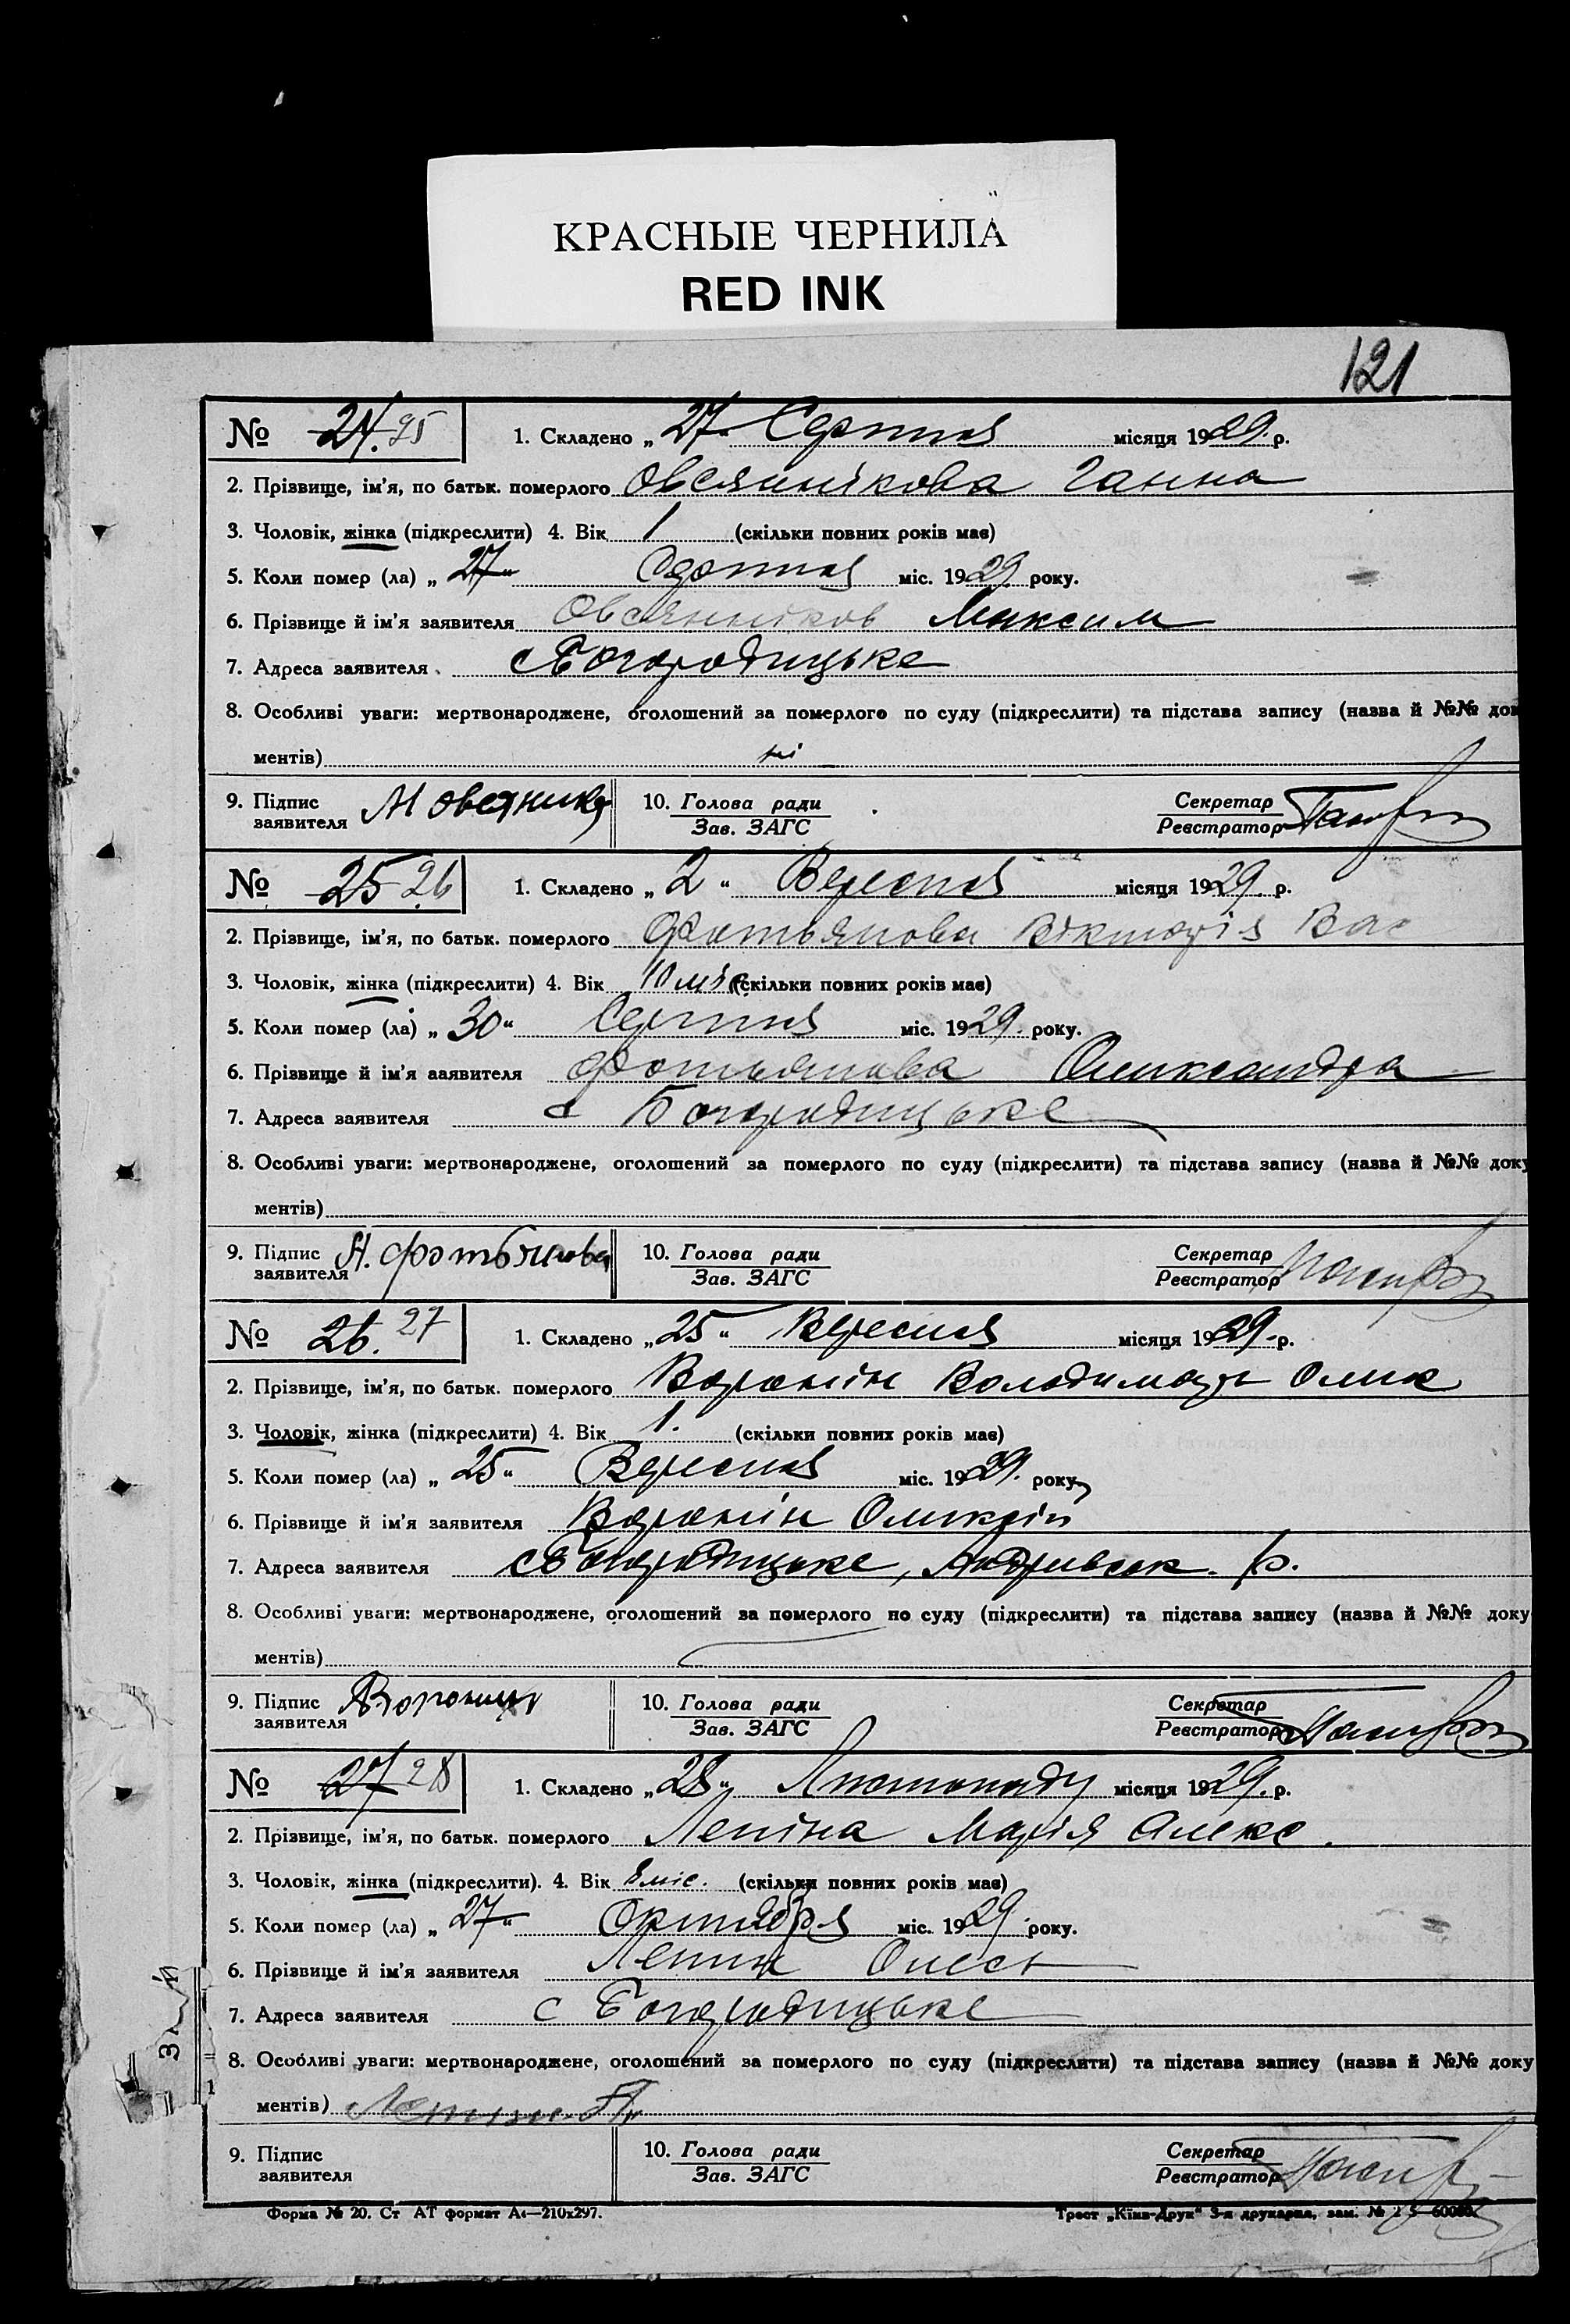 КРАСНЫЕ ЧЕРНИЛА
RED INK
121
№ 24. 25 1. Складено „27“ Серпня місяця 1929. р.
2. Прізвище, ім'я, по батьк. померлого Овсяннікова Ганна
3. Чоловік, жінка (підкреслити) 4. Вік 1 (скільки повних років має)
5. Коли помер (ла) „27“ Серпня міс. 1929. року.
6. Прізвище й ім'я заявителя Овсянніков Максим
7. Адреса заявителя с Богородицьке
8. Особливі уваги: мертвонароджене, оголошений за померлого по суду (підкреслити) та підстава запису (назва й №№ док
ментів) ні
9. Підпис заявителя М Овсяник 10. Голова ради Секретар
Зав. ЗАГС Реєстратор
№ 25 26 1. Складено „2“ Вересня місяця 1929. р.
2. Прізвище, ім'я, по батьк. померлого Фотьянова Вікторія Вас
3. Чоловік, жінка (підкреслити) 4. Вік 10 міс (скільки повних років має)
5. Коли помер (ла) „30“ Серпня міс. 1929. року.
6. Прізвище й ім'я заявителя Фотьянова Олександра
7. Адреса заявителя с Богородицьке
8. Особливі уваги: мертвонароджене, оголошений за померлого по суду (підкреслити) та підстава запису (назва й №№ доку
ментів)
9. Підпис заявителя А. Фотьянова 10. Голова ради Секретар
Зав. ЗАГС Реєстратор
№ 26. 27 1. Складено „25“ Вересня місяця 1929. р.
2. Прізвище, ім'я, по батьк. померлого Воронін Володимирь Олик
3. Чоловік, жінка (підкреслити) 4. Вік 1. (скільки повних років має)
5. Коли помер (ла) „25“ Вересня міс. 1929. року
6. Прізвище й ім'я заявителя Воронін Оликсій
7. Адреса заявителя с Богородицьке, Андривськ. р.
8. Особливі уваги: мертвонароджене, оголошений за померлого но суду (підкреслити) та підстава запису (назва й №№ доку
ментів)
9. Підпис заявителя Воронин 10. Голова ради Секретар
Зав. ЗАГС Реєстратор
№ 27 28 1. Складено „28“ Листопаду місяця 1929. р.
2. Прізвище, ім'я, по батьк. померлого Лепіна Марія Алекс.
3. Чоловік, жінка (підкреслити). 4. Вік 8 міс. (скільки повних років має)
5. Коли помер (ла) „27“ Октября міс. 1929. року.
6. Прізвище й ім'я заявителя Лепин Олесь
7. Адреса заявителя с Богородицьке
8. Особливі уваги: мертвонароджене, оголошений за померлого по суду (підкреслити) та підстава запису (назва й №№ доку
ментів)
9. Підпис заявителя 10. Голова ради Секретар
Зав. ЗАГС Реєстратор
Форма № 20. Ст АТ формат А4—210х297. Трест „Київ-Друк“ 3-я друкарня, зам. №